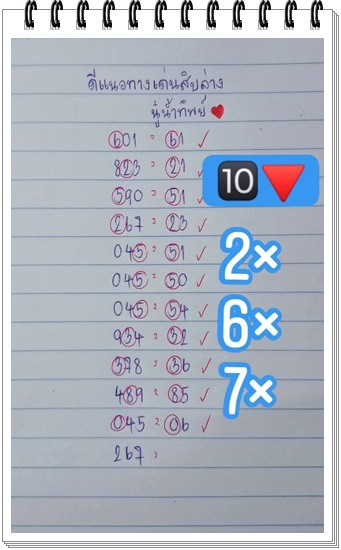 ดีแนวทางเด่นสิบล่าง
นู๋น้ำทิพย์
601 = 61 ✓
823 = 21 ✓
590 = 51 ✓
267 = 23 ✓
045 = 51 ✓
045 = 50 ✓
045 = 54 ✓
934 = 32 ✓
378 = 36 ✓
489 = 85 ✓
045 = 06 ✓
267 =
10
2×
6×
7×